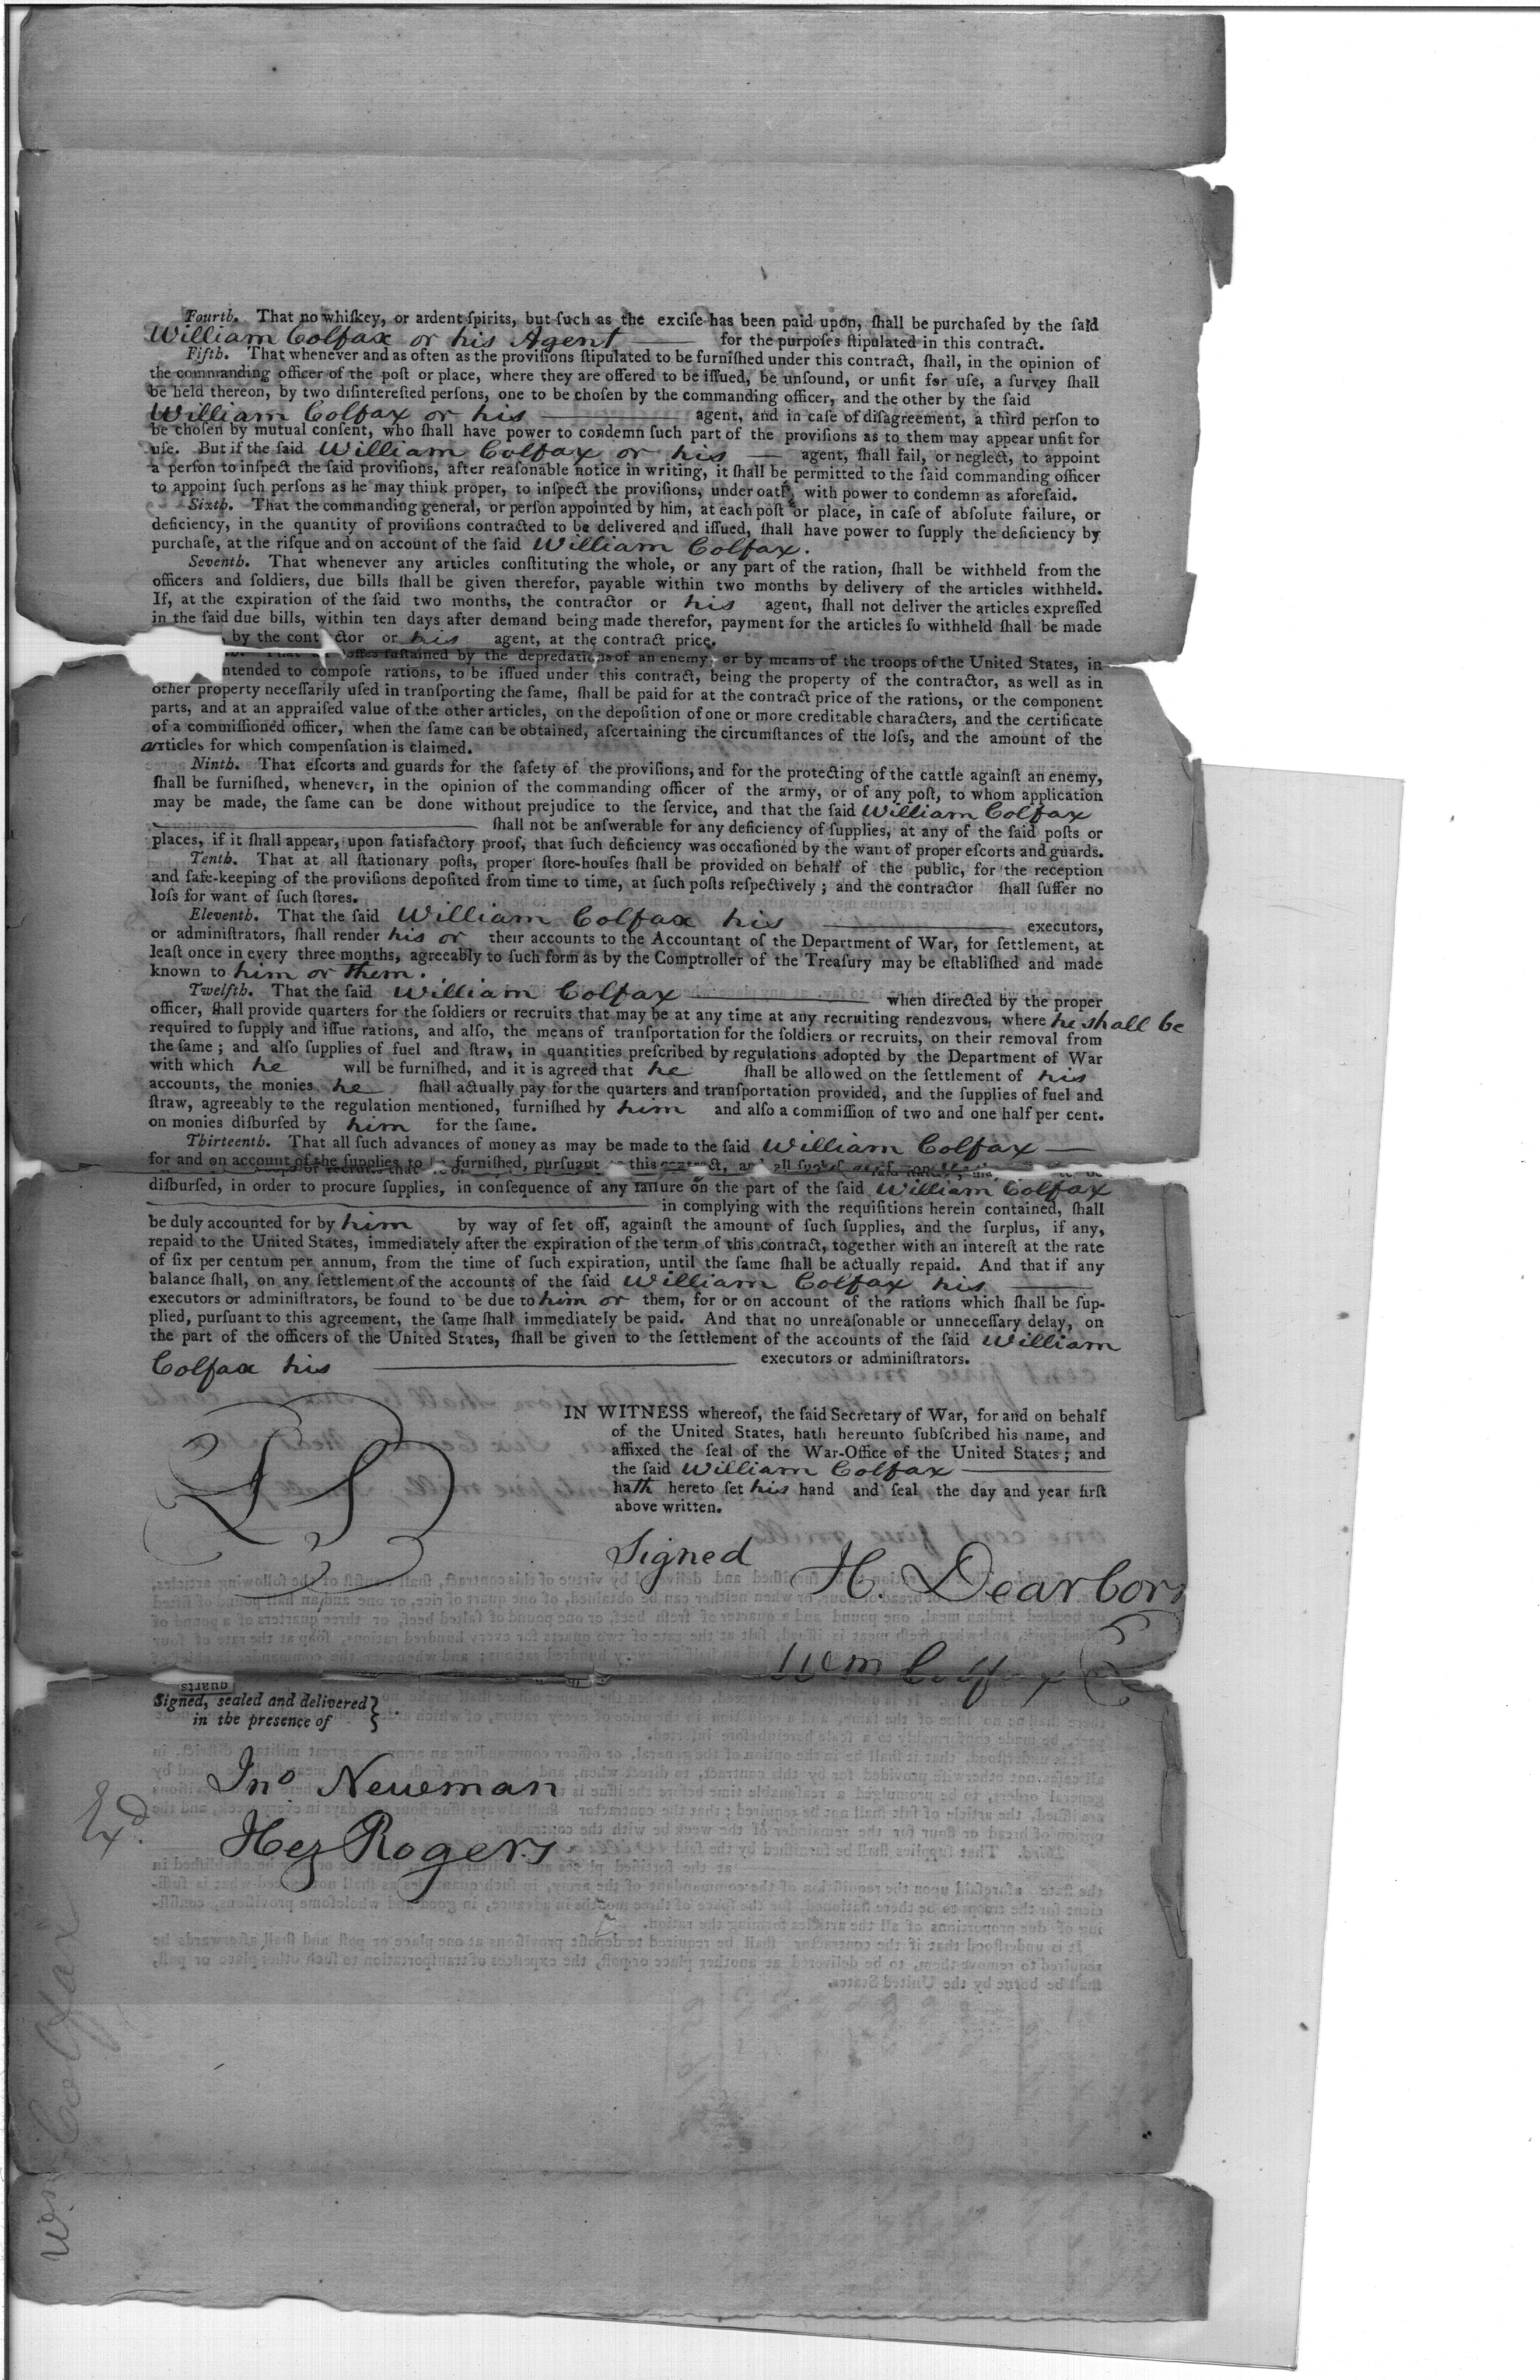 Fourth. That no whiſkey, or ardent ſpirits, but ſuch as the exciſe has been paid upon, ſhall be purchaſed by the ſaid
William Colfax or his Agent —— for the purpoſes ſtipulated in this contract.
Fifth. That whenever and as often as the proviſions ſtipulated to be furniſhed under this contract, ſhall, in the opinion of
the commanding officer of the poſt or place, where they are offered to be iſſued, be unſound, or unfit for uſe, a ſurvey ſhall
be held thereon, by two diſintereſted perſons, one to be choſen by the commanding officer, and the other by the ſaid
William Colfax or his —— agent, and in caſe of diſagreement, a third perſon to
be choſen by mutual conſent, who ſhall have power to condemn ſuch part of the proviſions as to them may appear unfit for
uſe. But if the ſaid William Colfax or his — agent, ſhall fail, or neglect, to appoint
a perſon to inſpect the ſaid proviſions, after reaſonable notice in writing, it ſhall be permitted to the ſaid commanding officer
to appoint ſuch perſons as he may think proper, to inſpect the proviſions, under oath, with power to condemn as aforeſaid.
Sixth. That the commanding general, or perſon appointed by him, at each poſt or place, in caſe of abſolute failure, or
deficiency, in the quantity of proviſions contracted to be delivered and iſſued, ſhall have power to ſupply the deficiency by
purchaſe, at the riſque and on account of the ſaid William Colfax.
Seventh. That whenever any articles conſtituting the whole, or any part of the ration, ſhall be withheld from the
officers and ſoldiers, due bills ſhall be given therefor, payable within two months by delivery of the articles withheld.
If, at the expiration of the ſaid two months, the contractor or his agent, ſhall not deliver the articles expreſſed
in the ſaid due bills, within ten days after demand being made therefor, payment for the articles ſo withheld ſhall be made
, by the cont ctor or his agent, at the contract price.
That all loſſes ſuſtained by the depredations of an enemy, or by means of the troops of the United States, in
intended to compoſe rations, to be iſſued under this contract, being the property of the contractor, as well as in
other property neceſſarily uſed in tranſporting the ſame, ſhall be paid for at the contract price of the rations, or the component
parts, and at an appraiſed value of the other articles, on the depoſition of one or more creditable characters, and the certificate
of a commiſſioned officer, when the ſame can be obtained, aſcertaining the circumſtances of the loſs, and the amount of the
articles for which compenſation is claimed.
Ninth. That eſcorts and guards for the ſafety of the proviſions, and for the protecting of the cattle againſt an enemy,
ſhall be furniſhed, whenever, in the opinion of the commanding officer of the army, or of any poſt, to whom application
may be made, the ſame can be done without prejudice to the ſervice, and that the ſaid William Colfax
—— ſhall not be anſwerable for any deficiency of ſupplies, at any of the ſaid poſts or
places, if it ſhall appear, upon ſatisfactory proof, that ſuch deficiency was occaſioned by the want of proper eſcorts and guards.
Tenth. That at all ſtationary poſts, proper ſtore-houſes ſhall be provided on behalf of the public, for the reception
and ſafe-keeping of the proviſions depoſited from time to time, at ſuch poſts reſpectively; and the contractor ſhall ſuffer no
loſs for want of ſuch ſtores.
Eleventh. That the ſaid William Colfax his —— executors,
or adminiſtrators, ſhall render his or their accounts to the Accountant of the Department of War, for ſettlement, at
leaſt once in every three months, agreeably to ſuch form as by the Comptroller of the Treaſury may be eſtabliſhed and made
known to him or them.
Twelfth. That the ſaid William Colfax —— when directed by the proper
officer, ſhall provide quarters for the ſoldiers or recruits that may be at any time at any recruiting rendezvous, where he shall be
required to ſupply and iſſue rations, and alſo, the means of tranſportation for the ſoldiers or recruits, on their removal from
the ſame; and alſo ſupplies of fuel and ſtraw, in quantities preſcribed by regulations adopted by the Department of War
with which he will be furniſhed, and it is agreed that he ſhall be allowed on the ſettlement of his
accounts, the monies he ſhall actually pay for the quarters and tranſportation provided, and the ſupplies of fuel and
ſtraw, agreeably to the regulation mentioned, furniſhed by him and alſo a commiſſion of two and one half per cent.
on monies diſburſed by him for the ſame.
Thirteenth. That all ſuch advances of money as may be made to the ſaid William Colfax —
for and on account of the ſupplies to be furniſhed, purſuant this contract, and all
diſburſed, in order to procure ſupplies, in conſequence of any failure on the part of the ſaid William Colfax
—— in complying with the requiſitions herein contained, ſhall
be duly accounted for by him by way of ſet off, againſt the amount of ſuch ſupplies, and the ſurplus, if any,
repaid to the United States, immediately after the expiration of the term of this contract, together with an intereſt at the rate
of ſix per centum per annum, from the time of ſuch expiration, until the ſame ſhall be actually repaid. And that if any
balance ſhall, on any ſettlement of the accounts of the ſaid William Colfax his ——
executors or adminiſtrators, be found to be due to him or them, for or on account of the rations which ſhall be ſup-
plied, purſuant to this agreement, the ſame ſhall immediately be paid. And that no unreaſonable or unneceſſary delay, on
the part of the officers of the United States, ſhall be given to the ſettlement of the accounts of the ſaid William
Colfax his —— executors or adminiſtrators.
IN WITNESS whereof, the ſaid Secretary of War, for and on behalf
of the United States, hath hereunto ſubſcribed his name, and
affixed the ſeal of the War-Office of the United States; and
the ſaid William Colfax ——
hath hereto ſet his hand and ſeal the day and year firſt
above written.
Signed H. Dearborn
Wm Colfax
Signed, sealed and delivered
in the presence of
Jno Newman
Exd.
Hez Rogers
Wm Colfax